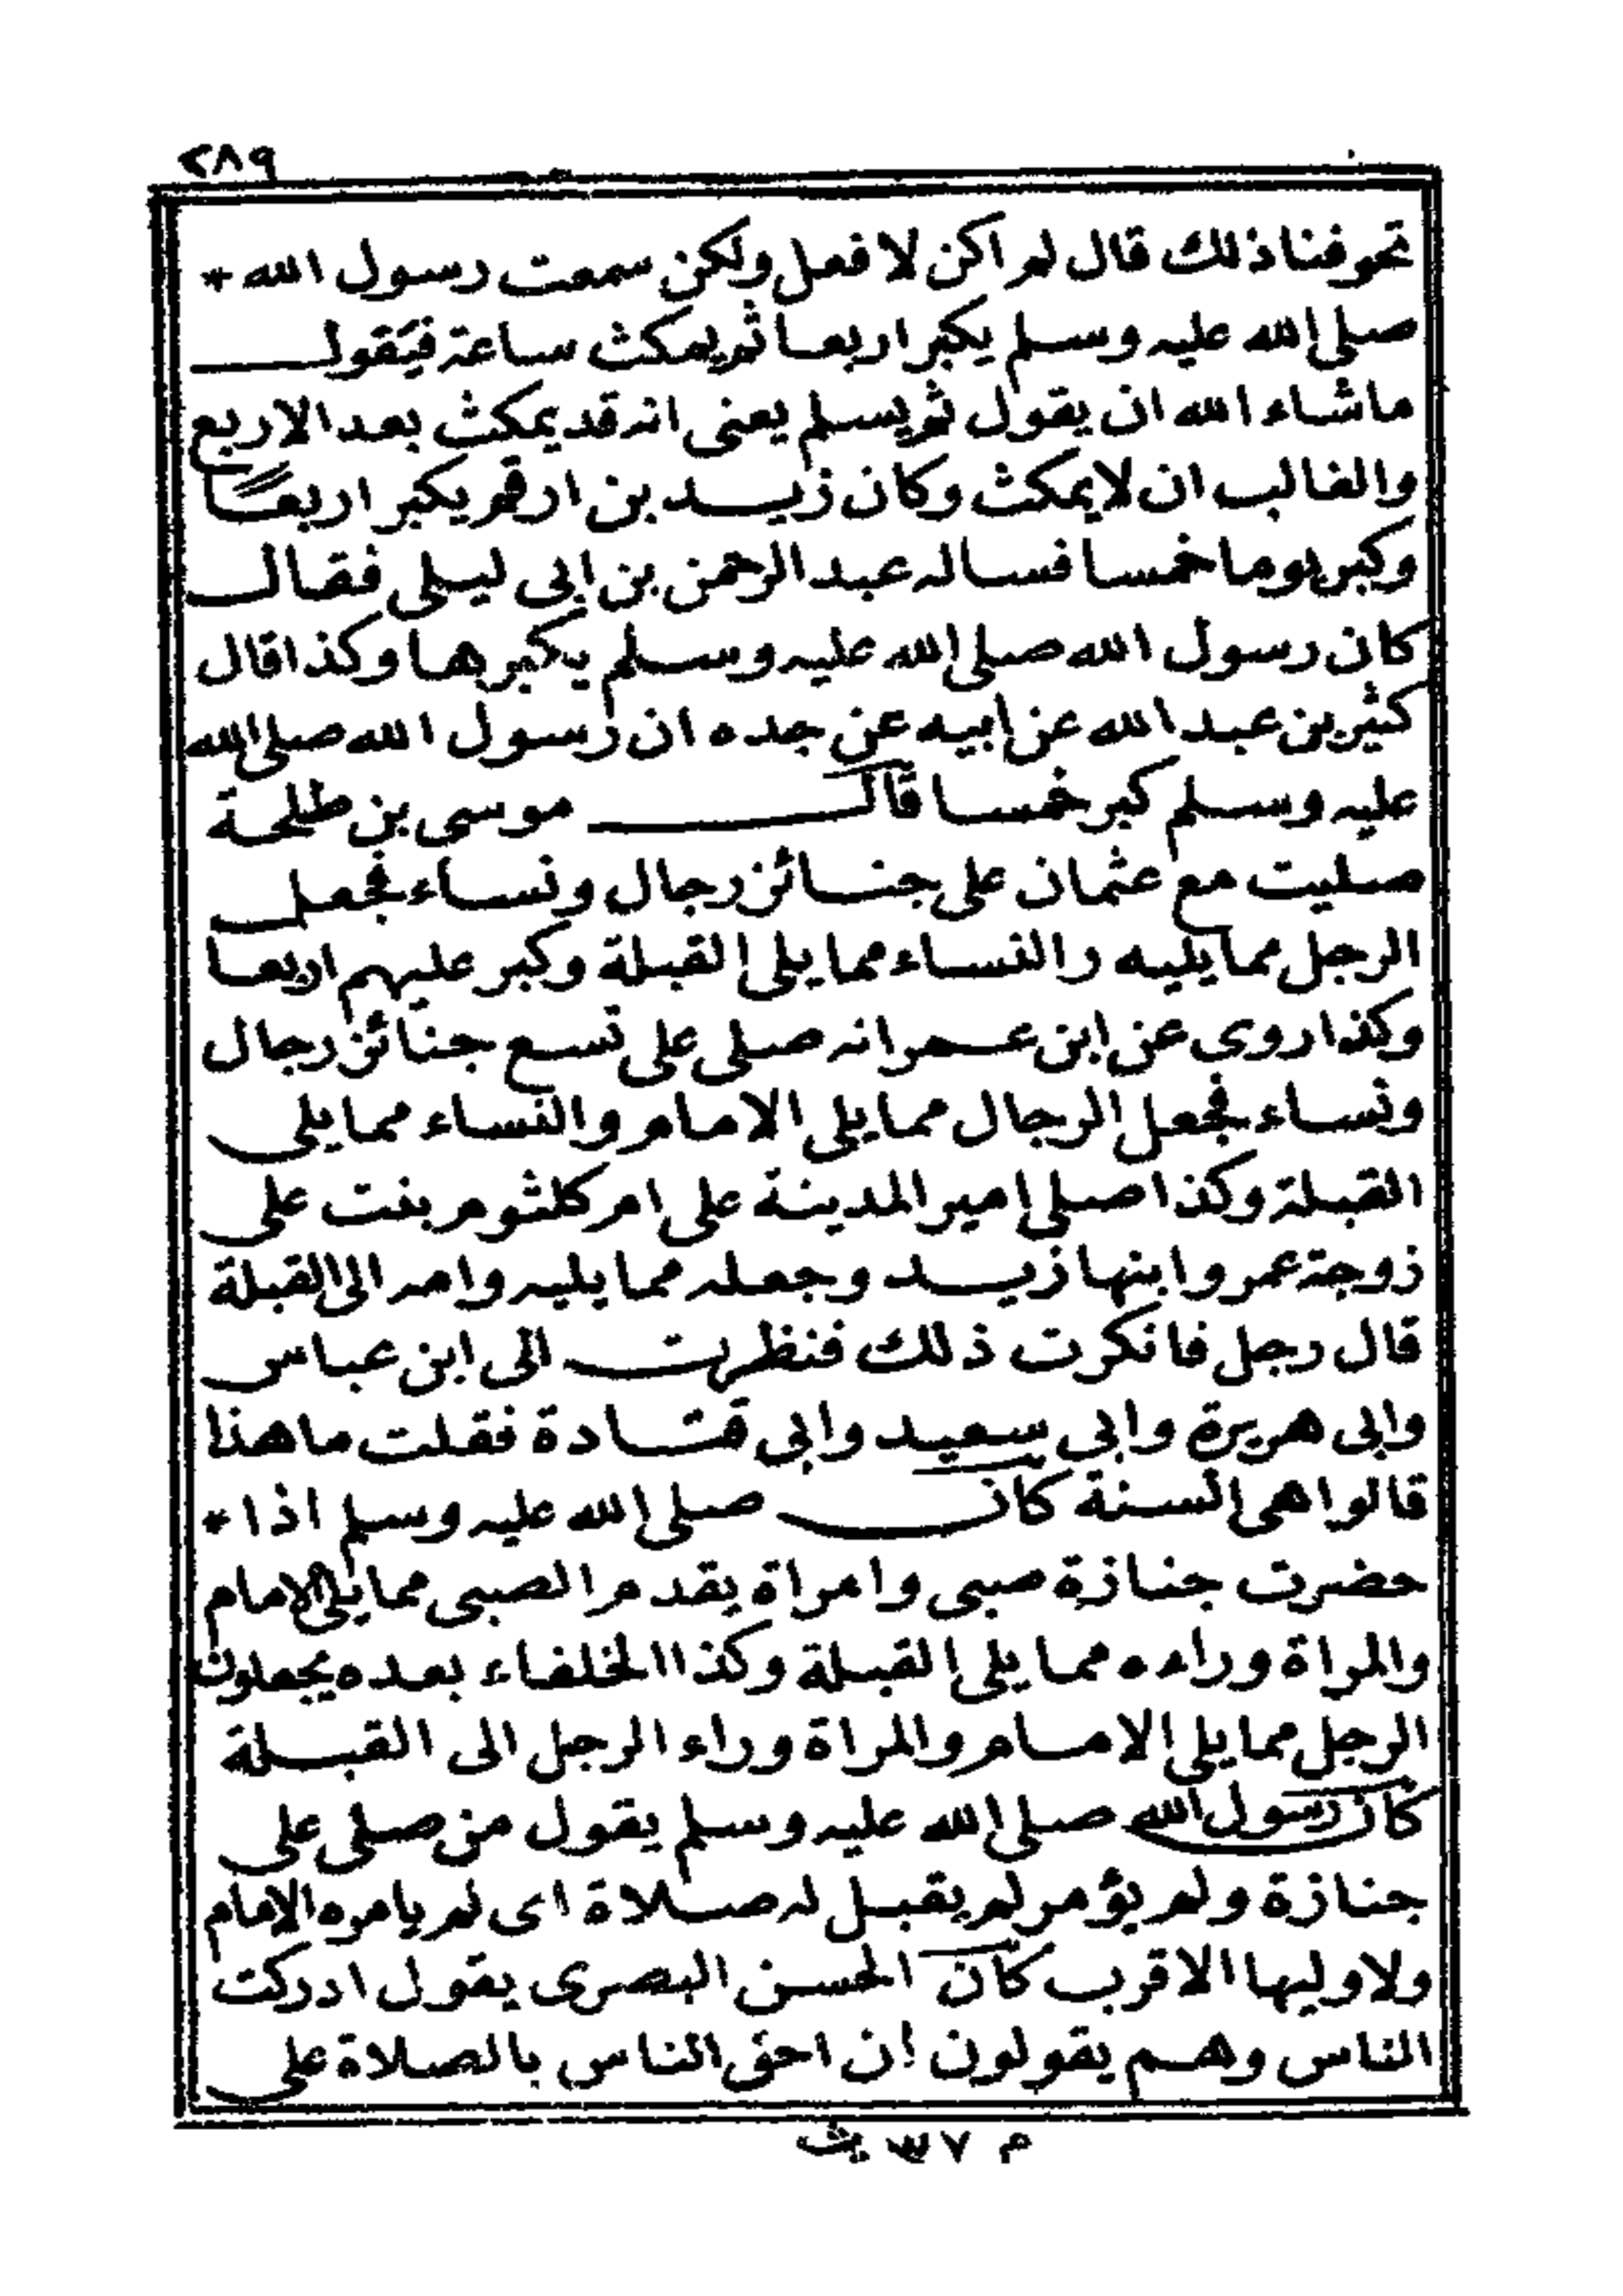 ٢٨٩
تخوفنا ذلك قال لم اكن لافعل ولكن سمعت رسول الله *
صلى الله عليه وسلم يكبر اربعا ثم يمكث ساعة فيقول
ماشاء الله ان يقول ثم يسلم يعنى انه قد يمكث بعد الاربع
والغالب ان لا يمكث وكان زيد بن ارقم يكبر اربعًا
وكبر يوما خمسا فساله عبد الرحمن بن ابى ليلى فقال
كان رسول الله صلى الله عليه وسلم يكبرها وكذا قال
كثير بن عبد الله عن ابيه عن جده ان رسول الله صلى الله
عليه وسلم كبر خمسا قال موسى بن طلحة
صليت مع عثمان على جنائز رجال ونساء فجعل
الرجل مما يليه والنساء مما يلى القبلة وكبر عليهم اربعا
وكذا روى عن ابن عمر انه صلى على تسع جنائز رجال
ونساء فجعل الرجال مما يلى الامام والنساء مما يلى
القبلة وكذا صلى امير المدينة على ام كلثوم بنت على
زوجة عمر وابنها زيد وجعله مما يليه وامه الى القبلة
قال رجل فانكرت ذلك فنظرت الى ابن عباس
وابى هريرة وابى سعيد وابى قتادة فقلت ما هذا
قالوا هى السنة كان صلى الله عليه وسلم اذا *
حضرت جنازة صبى وامراة يقدم الصبى مما يلى الامام
والمراة وراءه مما يلى القبلة وكذا الخلفاء بعده يجعلون
الرجل مما يلى الامام والمراة وراء الرجل الى القبلة
كان رسول الله صلى الله عليه وسلم يقول من صلى على
جنازة ولم يؤمر لم يقبل له صلاة اى لم يامره الامام
ولا وليها الاقرب كان الحسن البصرى يقول ادركت
الناس وهم يقولون ان احق الناس بالصلاة على
م ٧٣ يث